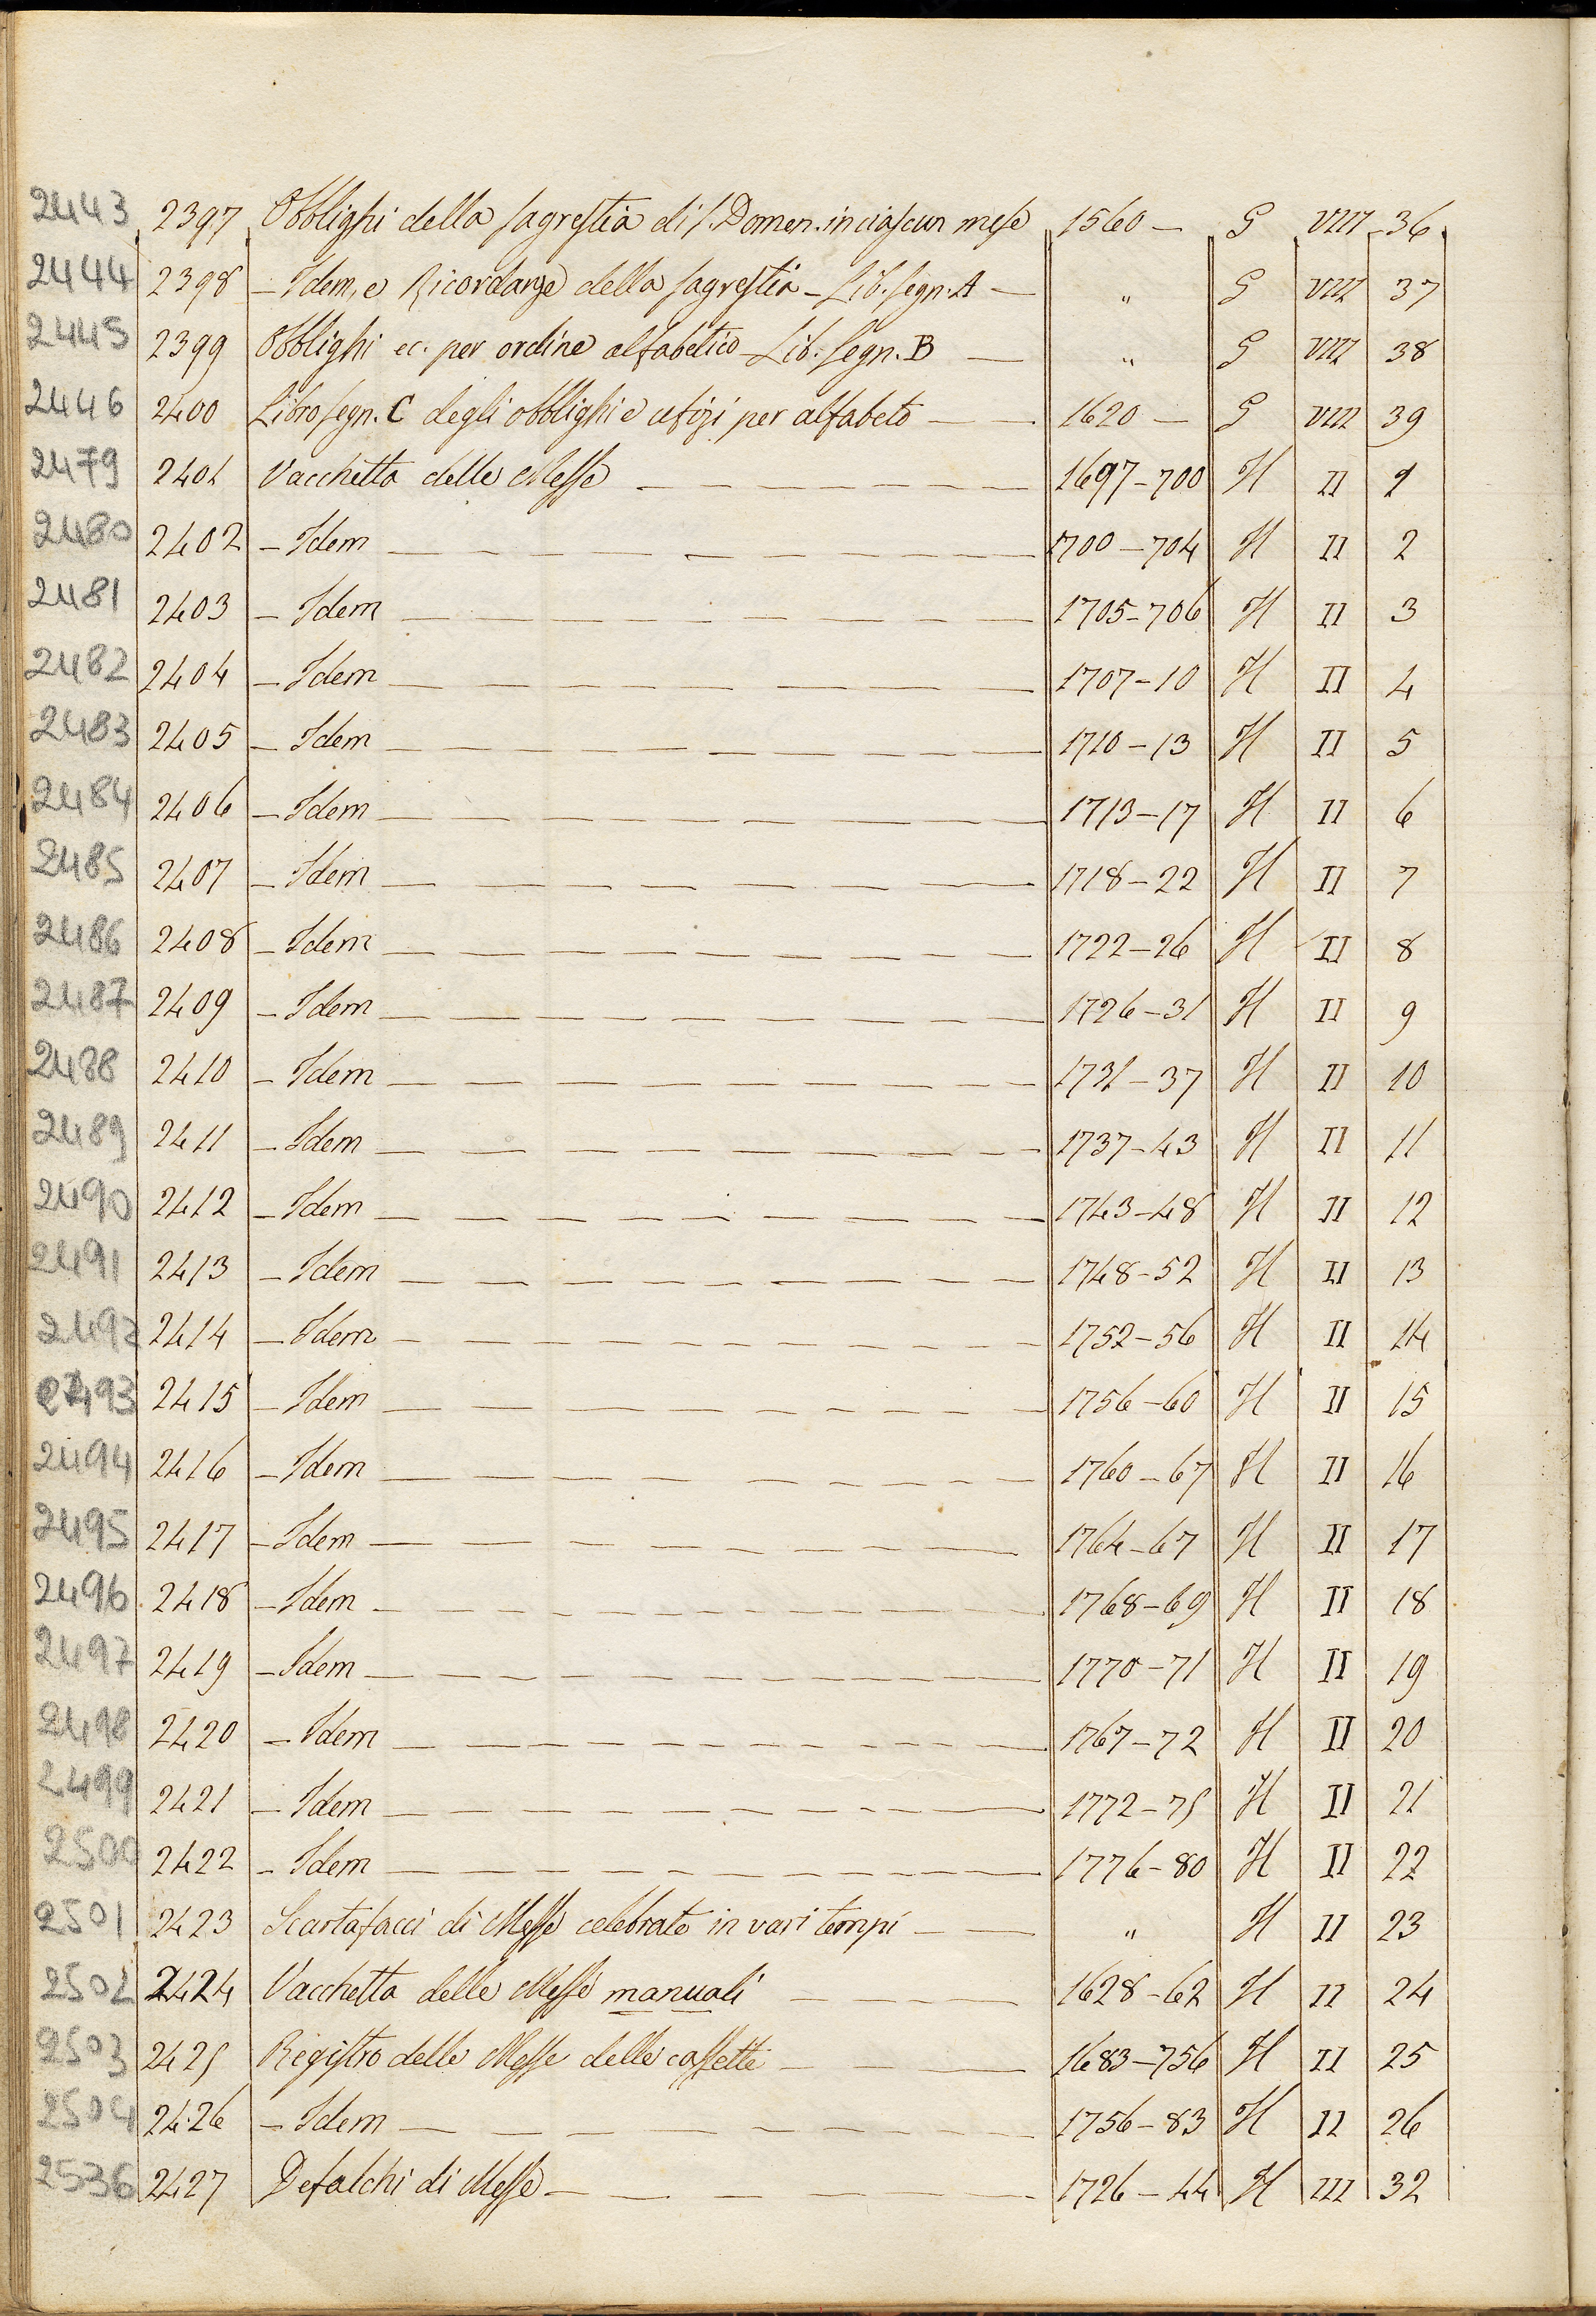 2443 2397 Obblighi della sagrestia di S. Domen. in ciascun mese 1560 — G VIII 36
2444 2398 — Idem, e Ricordanze della sagrestia — Lib. segn. A — " G VIII 37
2445 2399 Obblighi ec. per ordine alfabetico — Lib. segn. B — " G VIII 38
2446 2400 Libro segn. C degli obblighi e ufizi per alfabeto — 1620 — G VIII 39
2479 2401 Vacchetta delle Messe — 1697-700 H II 1
2480 2402 — Idem — 1700-704 H II 2
2481 2403 — Idem — 1705-706 H II 3
2482 2404 — Idem — 1707-10 H II 4
2483 2405 — Idem — 1710-13 H II 5
2484 2406 — Idem — 1713-17 H II 6
2485 2407 — Idem — 1718-22 H II 7
2486 2408 — Idem — 1722-26 H II 8
2487 2409 — Idem — 1726-31 H II 9
2488 2410 — Idem — 1731-37 H II 10
2489 2411 — Idem — 1737-43 H II 11
2490 2412 — Idem — 1743-48 H II 12
2491 2413 — Idem — 1748-52 H II 13
2492 2414 — Idem — 1752-56 H II 14
2493 2415 — Idem — 1756-60 H II 15
2494 2416 — Idem — 1760-67 H II 16
2495 2417 — Idem — 1764-67 H II 17
2496 2418 — Idem — 1768-69 H II 18
2497 2419 — Idem — 1770-71 H II 19
2498 2420 — Idem — 1767-72 H II 20
2499 2421 — Idem — 1772-75 H II 21
2500 2422 — Idem — 1776-80 H II 22
2501 2423 Scartafacci di Messe celebrate in vari tempi — " H II 23
2502 2424 Vacchetta delle Messe manuali — 1628-62 H II 24
2503 2425 Registro delle Messe delle cassette — 1683-756 H II 25
2504 2426 — Idem — 1756-83 H II 26
2536 2427 Defalchi di Messe — 1726-44 H III 32